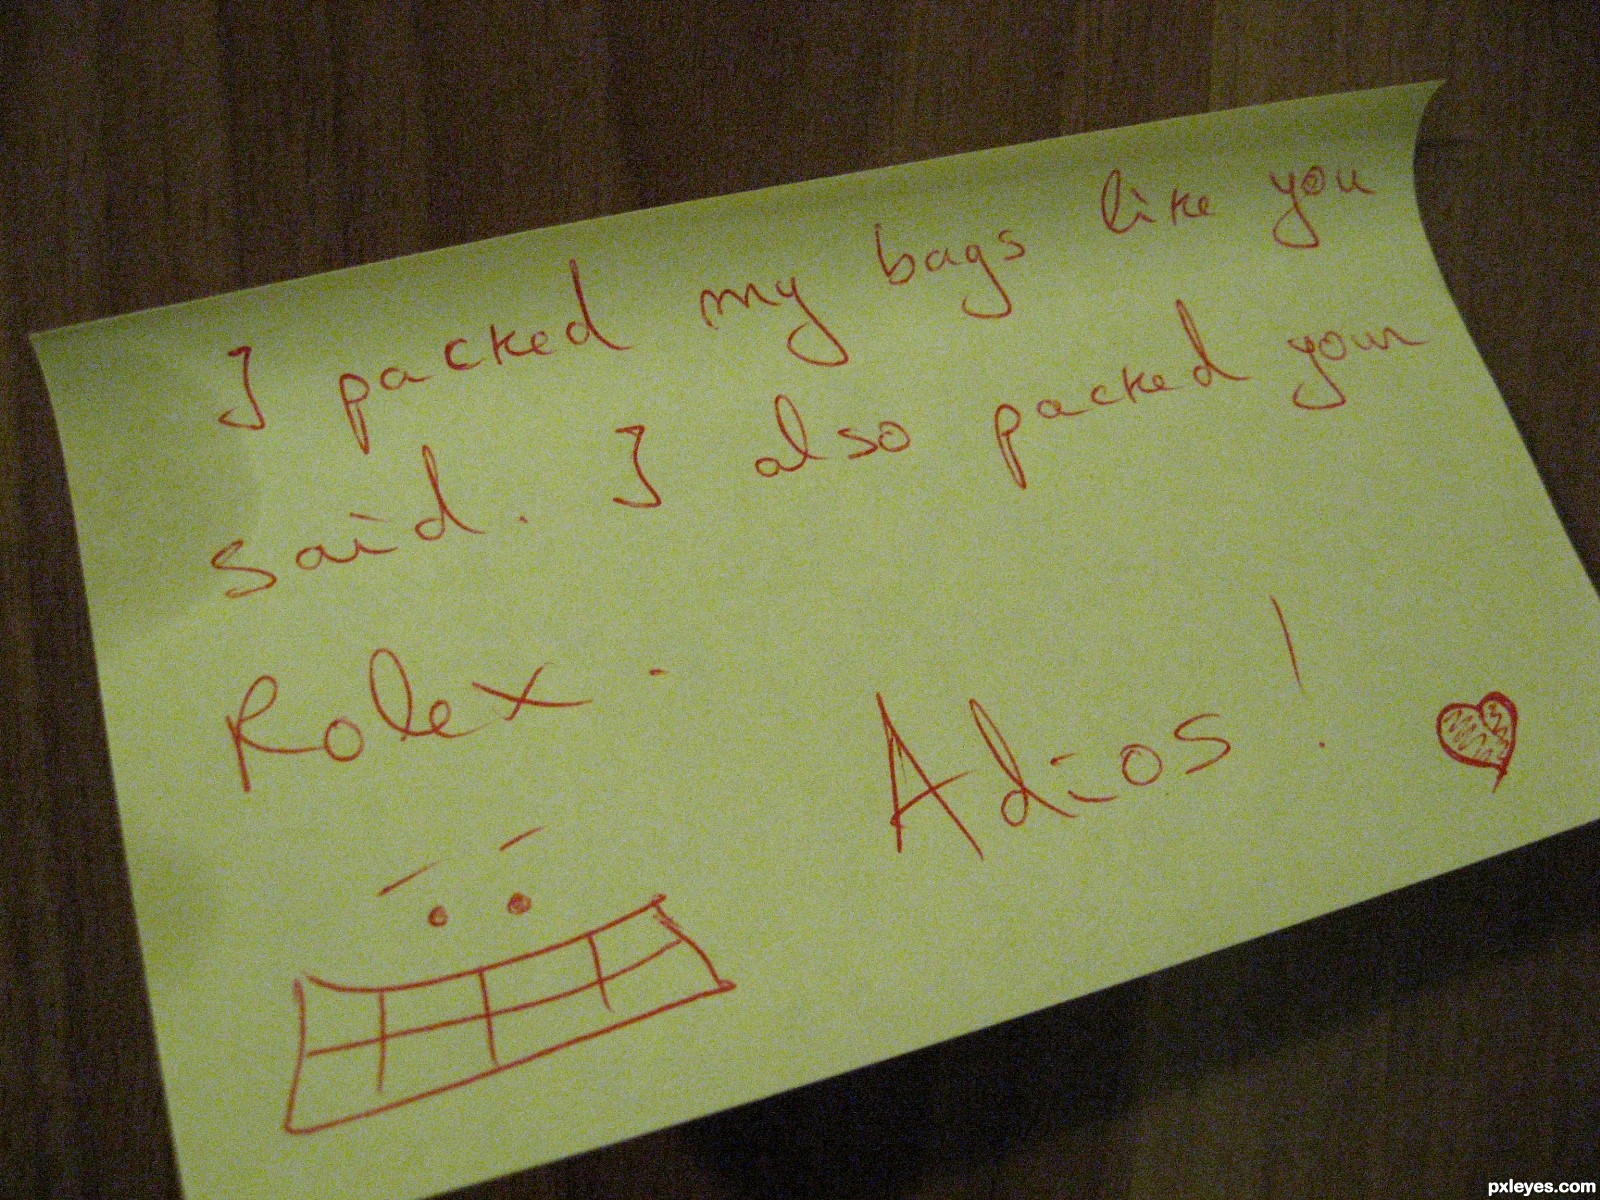 I packed my bags like you
said. I also packed your
Rolex.
Adios!
pxleyes.com